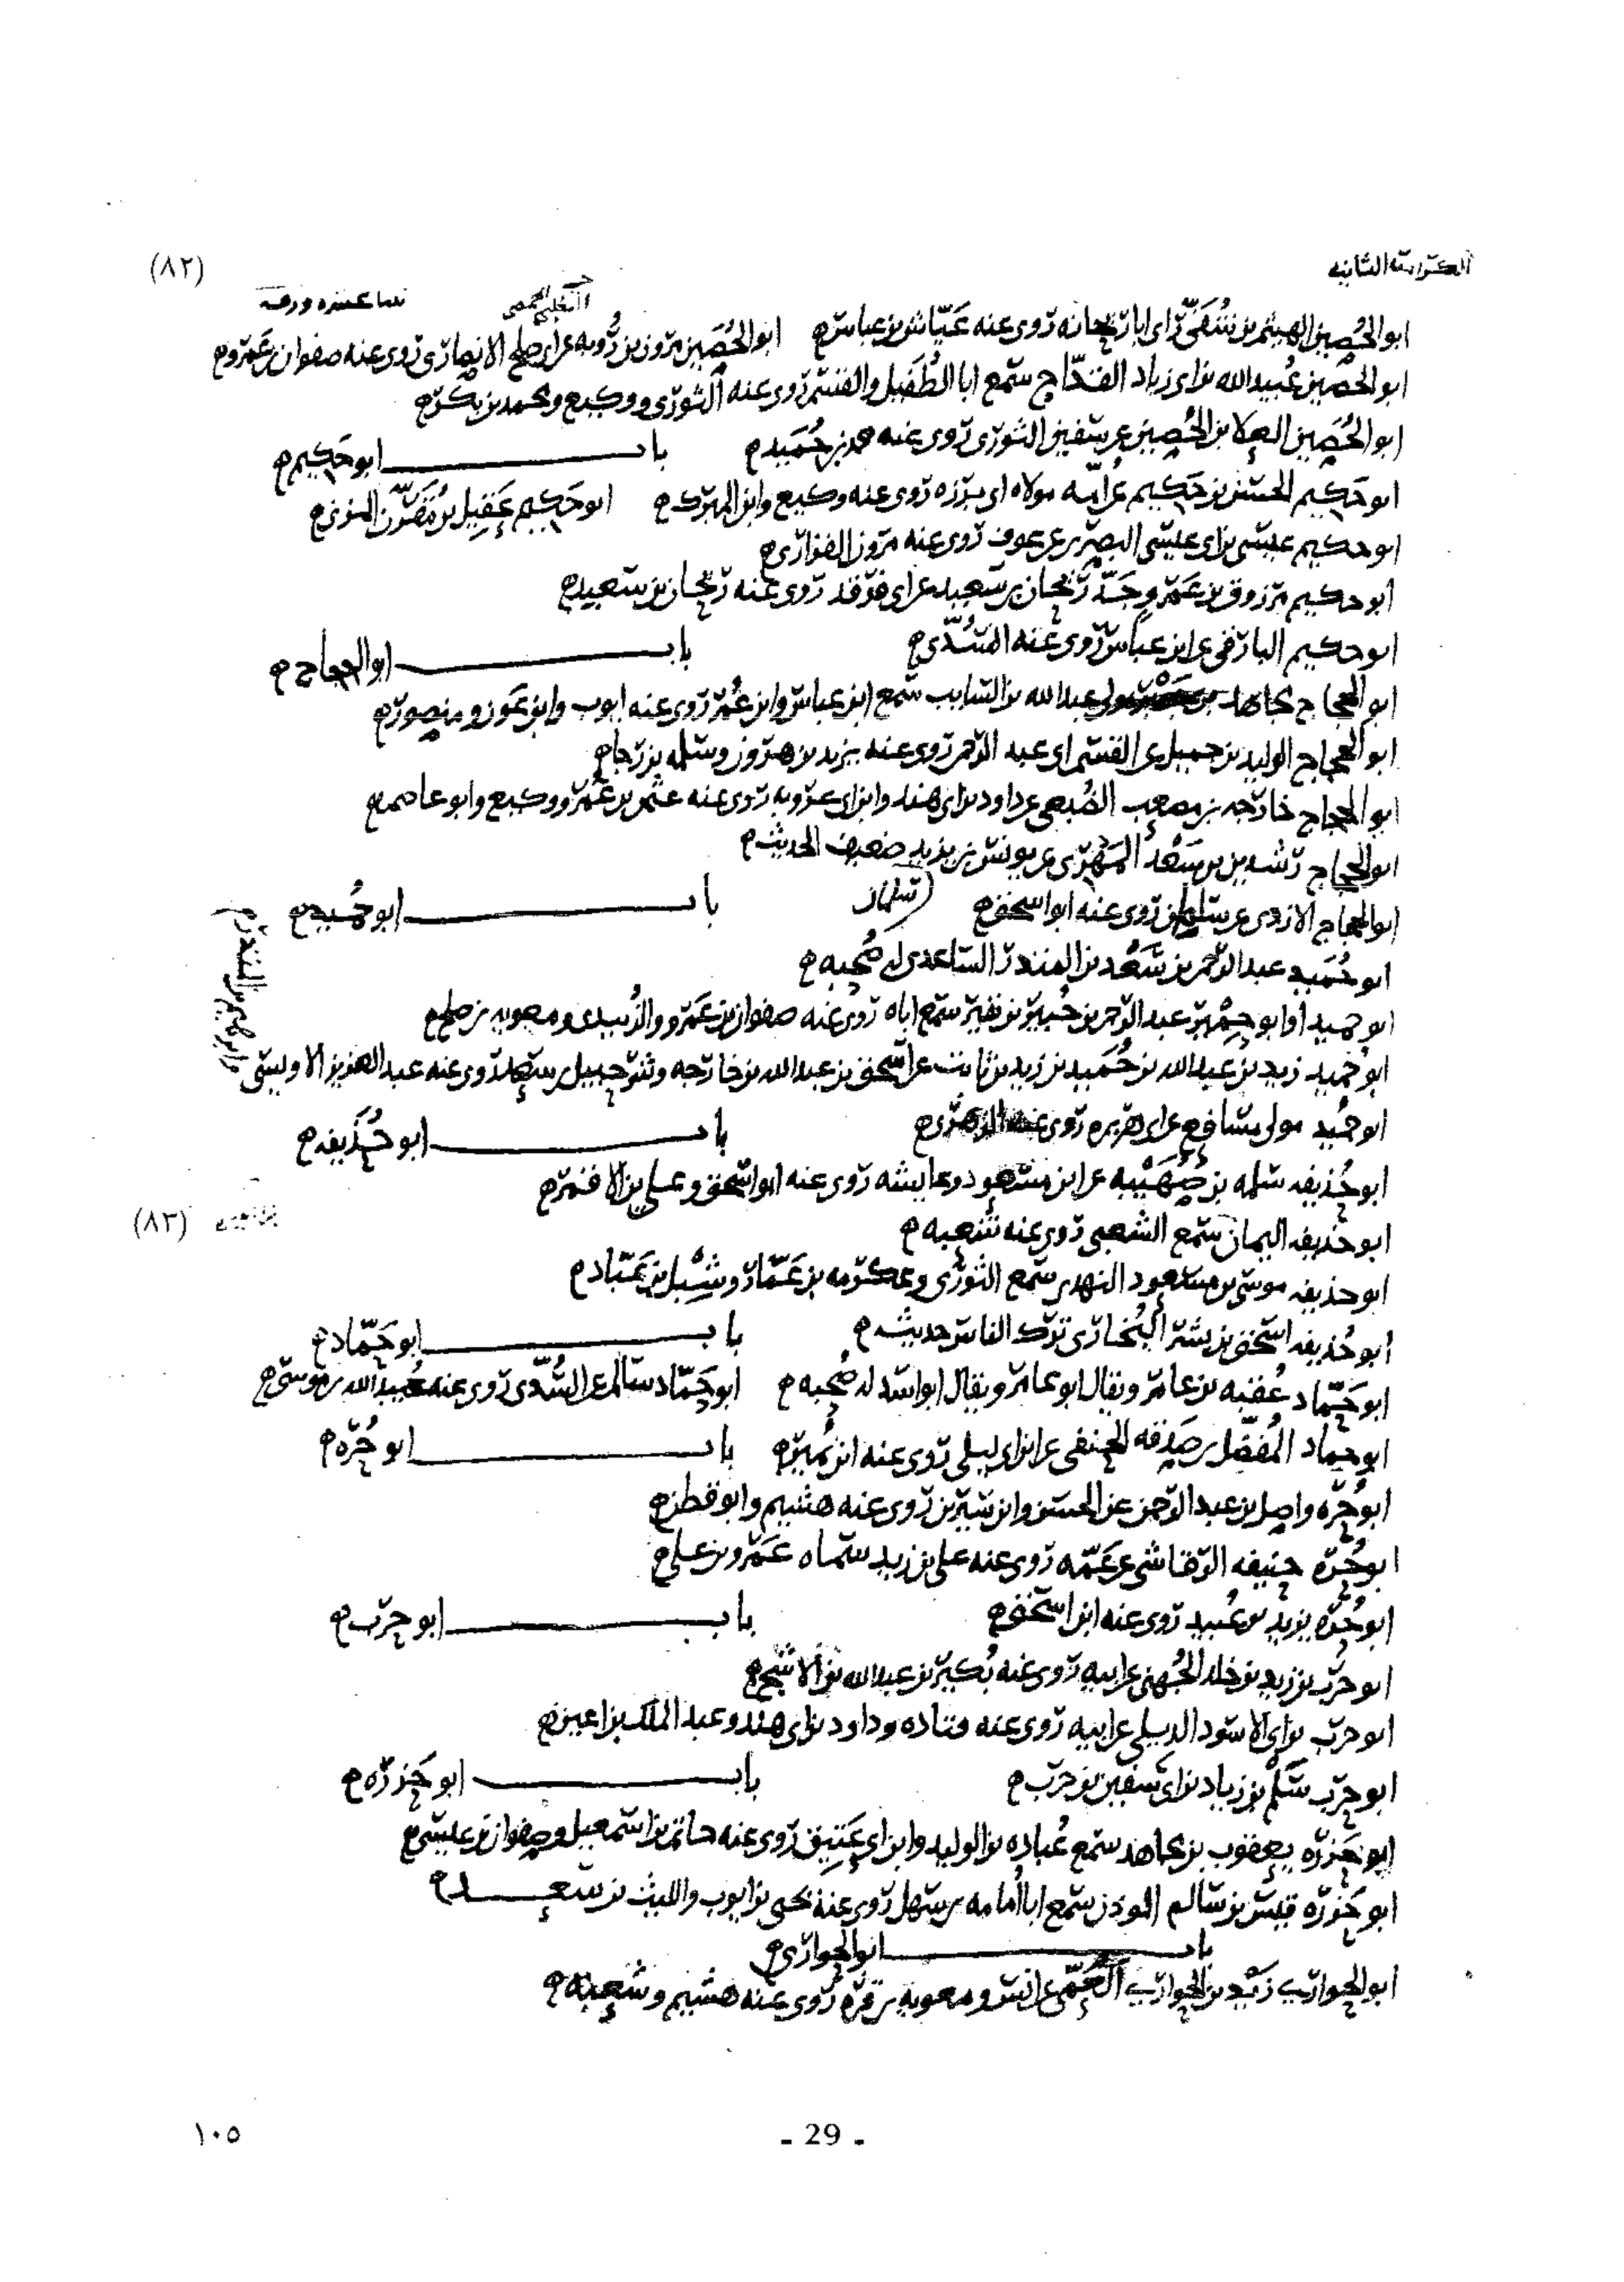 (٨٢)
الكراسة الثانية
ابو الحُصين الهيثم بن شُفَىّ راى ابا ريحانه روى عنه عَيّاش بن عباس ابو الحُصَين مروان بن رُوبه عن ابى صلح الانصارى روى عنه صفوان بن عَمرو
التغلبى الحمصى
ابو الحصين عُبيد الله بن ابى زياد القدّاح سمع ابا الطُفَيل والقسم روى عنه الثورى ووكيع ومحمد بن بكر
ابو الحُصَين العلا بن الحُصين عن سفين الثورى روى عنه محمد بن حُمَيد باب ابو حَكيم
ابو حَكيم الحسن بن حَكيم عن امه مولاه ابى برزه روى عنه وكيع وابن المبرك ابو حَكيم عَقيل بن مُقَرّن المزنى
ابو حكيم عيسى بن ابى عيسى البصرى عن عوف روى عنه مروان الفزارى
ابو حكيم مرزوق بن عَمرو جَدّ ريحان بن سعيد عن ابى فرقد روى عنه ريحان بن سعيد
ابو حكيم البارقى عن ابن عباس روى عنه السُدّى باب ابو الحجاج
ابو الحجاج مجاهد بن جبر مولى عبد الله بن السايب سمع ابن عباس وابن عُمر روى عنه ايوب وابن عون ومنصور
ابو الحجاج الوليد بن جميل عن القسم ابى عبد الرحمن روى عنه يزيد بن هرون وسلمه بن رجا
ابو الحجاج خارجه بن مصعب الضُبعى عن داود بن ابى هند وابن ابى عروبه روى عنه عثمن بن عُمَر ووكيع وابو عاصم
ابو الحجاج رشدين بن سَعْد المَهْرى عن يونس بن يزيد ضعيف الحديث
ابو الحجاج الازدى عن سلمان روى عنه ابو اسحق باب ابو حُميد
سلمان
ابو حُمَيد عبد الرحمن بن سَعْد بن المنذر الساعدى له صُحبه
ابو حميد او ابو حِمْيَر عبد الرحمن بن جُبير بن نفير سمع اباه روى عنه صفوان بن عَمرو والزُبيدى ومعويه بن صلح
ابو حميد زيد بن عبد الله بن حُمَيد بن زيد بن ثابت عن اسحق بن عبد الله بن خارجه وشرحبيل بن سعد روى عنه عبد العزيز الاويسى
وابرهيم بن المنذر
ابو حميد مولى مسافع عن ابى هريره روى عنه الزهرى باب ابو حُذَيفه
ابو حُذيفه سلمه بن صُهَيْبه عن ابن مسعود وعايشه روى عنه ابو اسحق وعلى بن الاقمر
(٨٣)
ابو حذيفه اليمان سمع الشعبى روى عنه شعبه
ابو حذيفه موسى بن مسعود النهدى سمع الثورى وعكرمه بن عَمّار وشِبْل بن عَبّاد
ابو حُذيفه اسحق بن بشر البُخارى ترك الناس حديثه باب ابو حَمّاد
ابو حَمّاد عُقبه بن عامر ويقال ابو عامر ويقال ابو اسد له صُحبه ابو حَمّاد سالم عن السُدّى روى عنه عُبيد الله بن موسى
ابو حماد المُفَضّل بن صَدقه الحنفى عن ابن ابى ليلى روى عنه ابن نُمير باب ابو حُرّه
ابو حُرّه واصل بن عبد الرحمن عن الحسن وابن سيرين روى عنه هشيم وابو قطن
ابو حُرّه حنيفه الرقاشى عن عَمّه روى عنه على بن زيد سماه عَمرو بن على
ابو حُرّه يزيد بن عُبيد روى عنه ابن اسحق باب ابو حرب
ابو حرب بن زيد بن خلد الجُهنى عن ابيه روى عنه بُكير بن عبد الله بن الاشج
ابو حرب بن ابى الاسود الديلى عن ابيه روى عنه قتاده وداود بن ابى هند وعبد الملك بن اعين
ابو حرب سَلْم بن زياد بن ابى سفين بن حرب باب ابو حَزره
ابو حَزره يعقوب بن مجاهد سمع عُباده بن الوليد وابن ابى عَتيق روى عنه حاتم بن اسمعيل وصفوان بن عيسى
ابو حَزره قيس بن سالم الموذن سمع ابا اُمامه بن سهل روى عنه يحيى بن ايوب والليث بن سعد
باب ابو الحوارى
ابو الحوارى زيد بن الحوارى العَمّى عن انس ومعويه بن قره روى عنه هشيم وشعبه
- 29 -
١٠٥